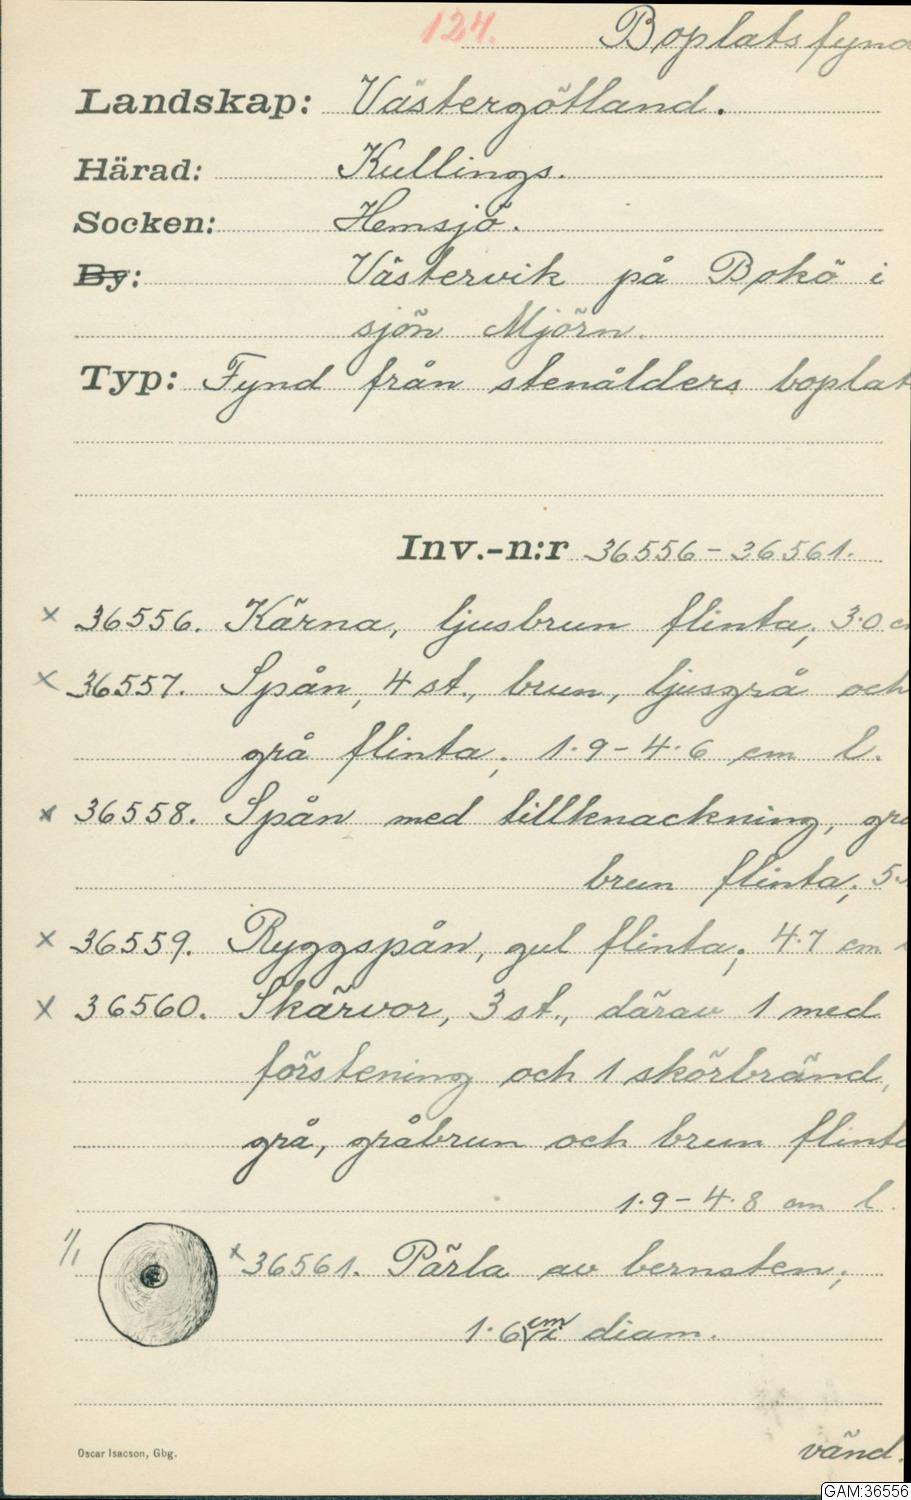 124. Boplatsfynd
Landskap: Västergötland.
Härad: Kullings.
Socken: Hemsjö.
By: Västervik på Bokö i
sjön Mjörn.
Typ: Fynd från stenålders boplat
Inv.-n:r 36556-36561.
x 36556. Kärna, ljusbrun flinta; 3.0 c
x 36557. Spån, 4 st., brun, ljusgrå och
grå flinta; 1.9-4.6 cm l.
x 36558. Spån med tillknackning, grå
brun flinta; 5.
x 36559. Ryggspån, gul flinta; 4.7 cm
x 36560. Skärvor, 3 st., därav 1 med
förstening och 1 skörbränd,
grå, gråbrun och brun flinta
1.9-4.8 cm l.
1/1 x 36561. Pärla av bernsten;
1.6 cm i diam.
vänd.
Oscar Isacson, Gbg.
GAM:36556